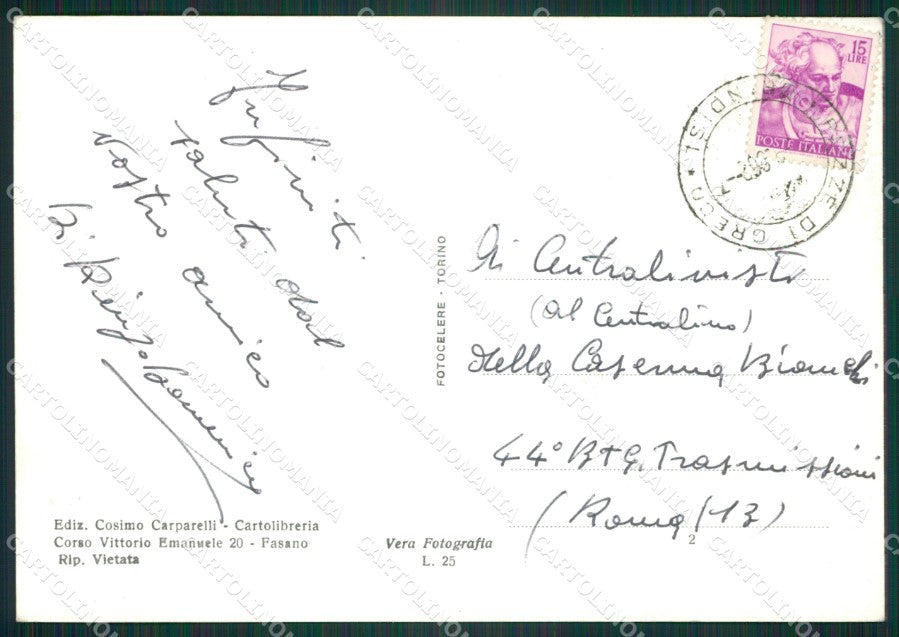 Infiniti
saluti dal
vostro amico
Di Rienzo Domenico
Ediz. Cosimo Carparelli - Cartolibreria
Corso Vittorio Emanuele 20 - Fasano
Rip. Vietata
Vera Fotografia
L. 25
FOTOCELERE - TORINO
15
LIRE
POSTE ITALIANE
DI GRECO
Ai Centralinisti
(Al Centralino)
Della Caserma Bianchi
44° BTG. Trasmissioni
(Roma (13)
2
CARTOLINOMANIA